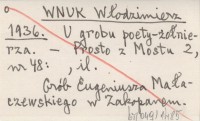 o WNUK Włodzimierz
1936. U grobu poety-żołnie-
rza. — Prosto z Mostu 2,
nr 48: , il.
Grób Eugeniusza Mała-
czewskiego w Zakopanem.